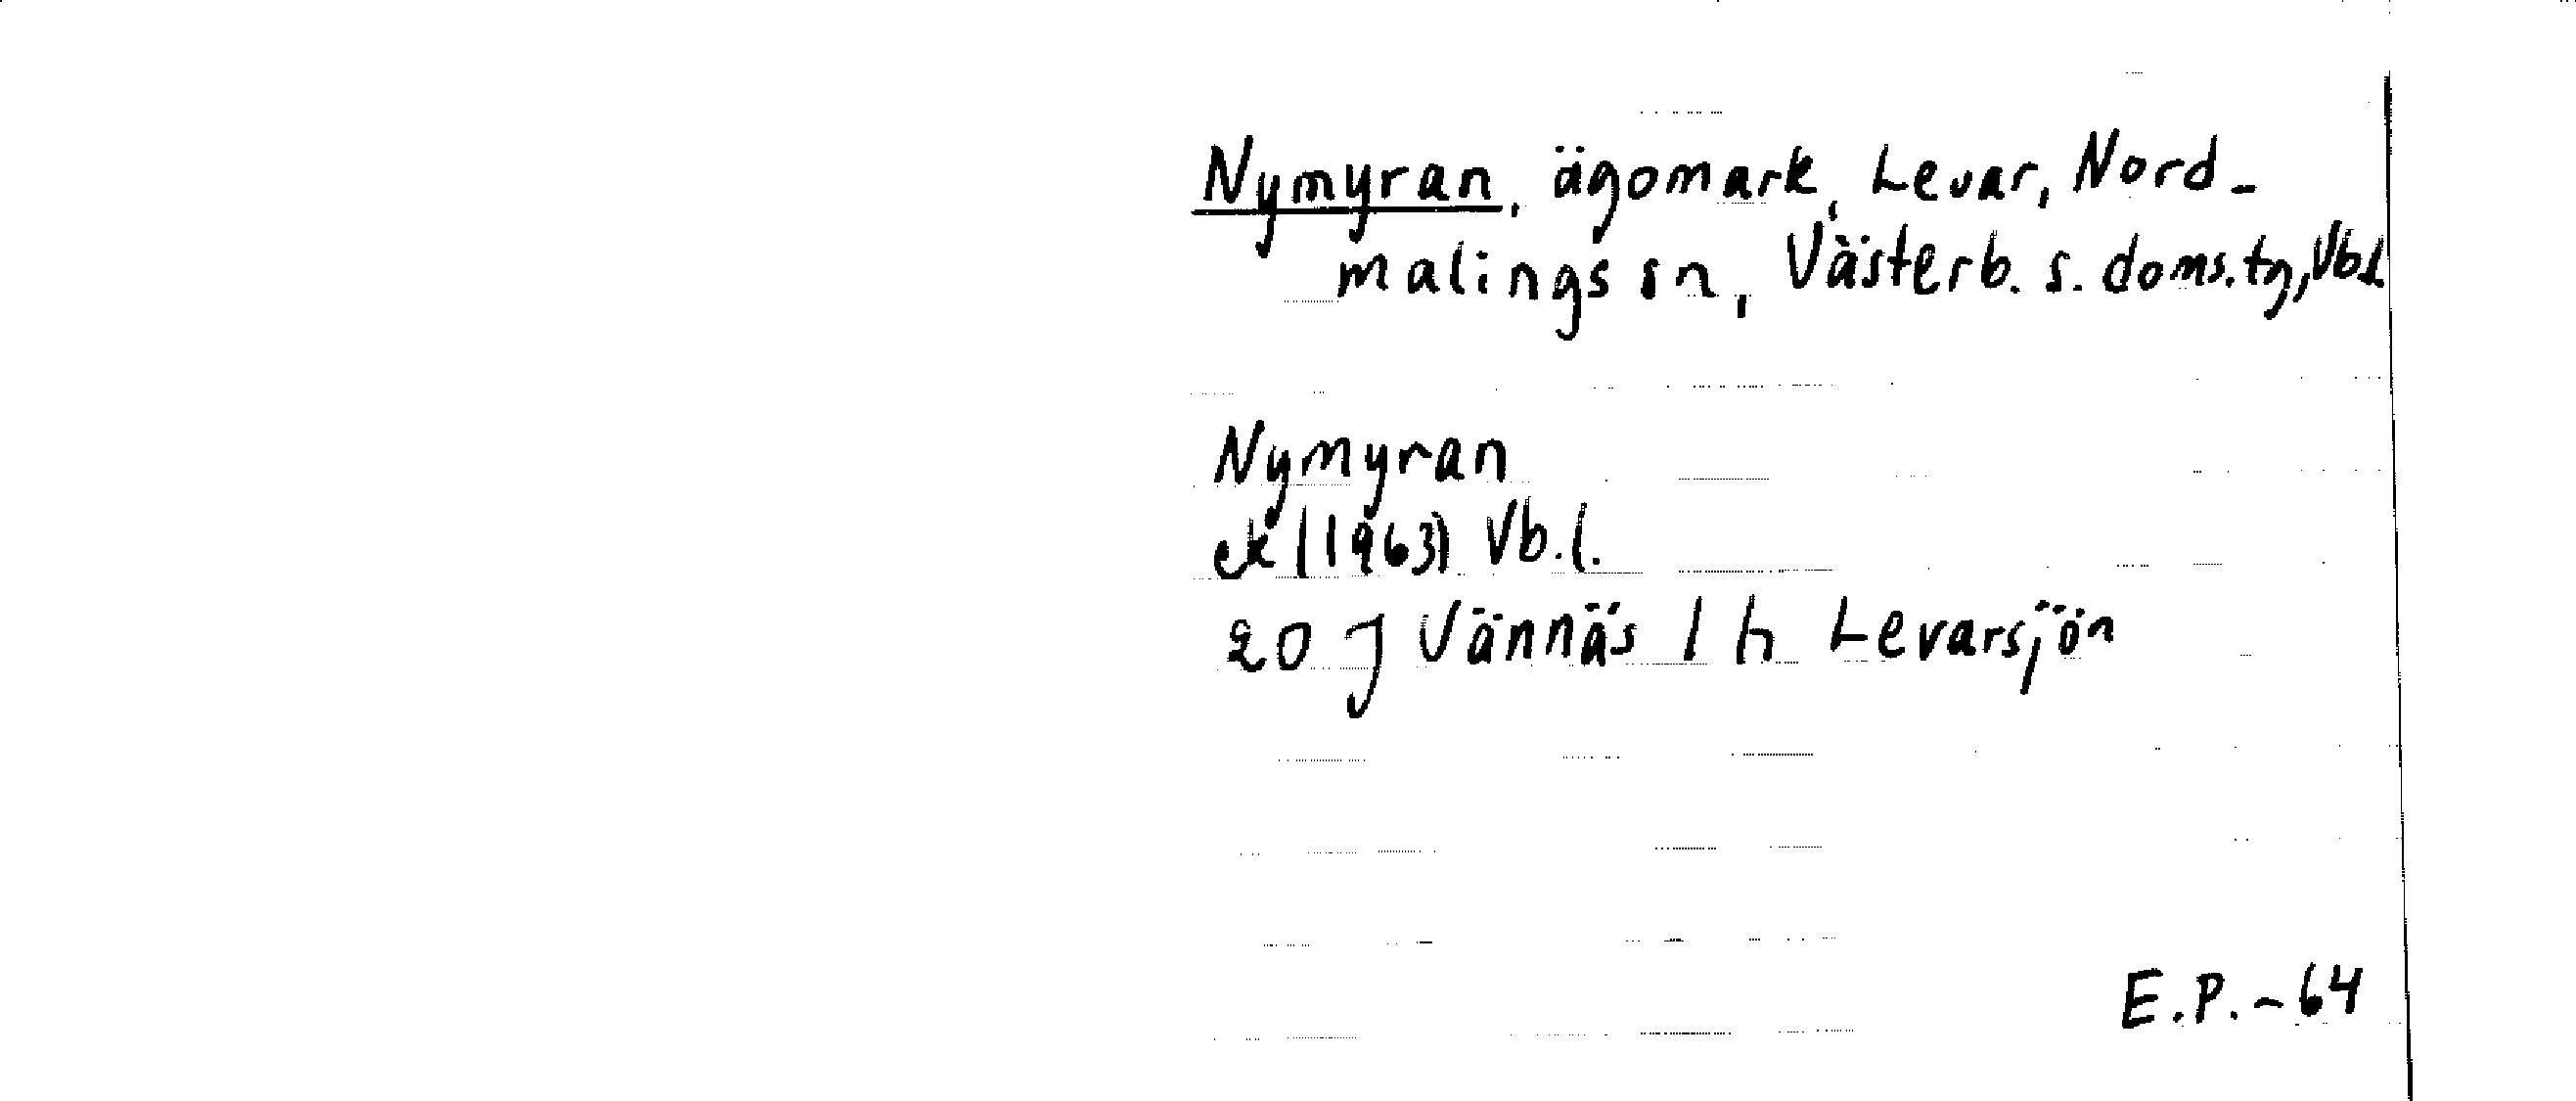 Nymyran, ägomark, Levar, Nord-
malings sn, Västerb. s. doms.tg, Vbl
Nymyran
ek (1963) Vb.l.
20 J Vännäs 1 h Levarsjön
E.P. -64